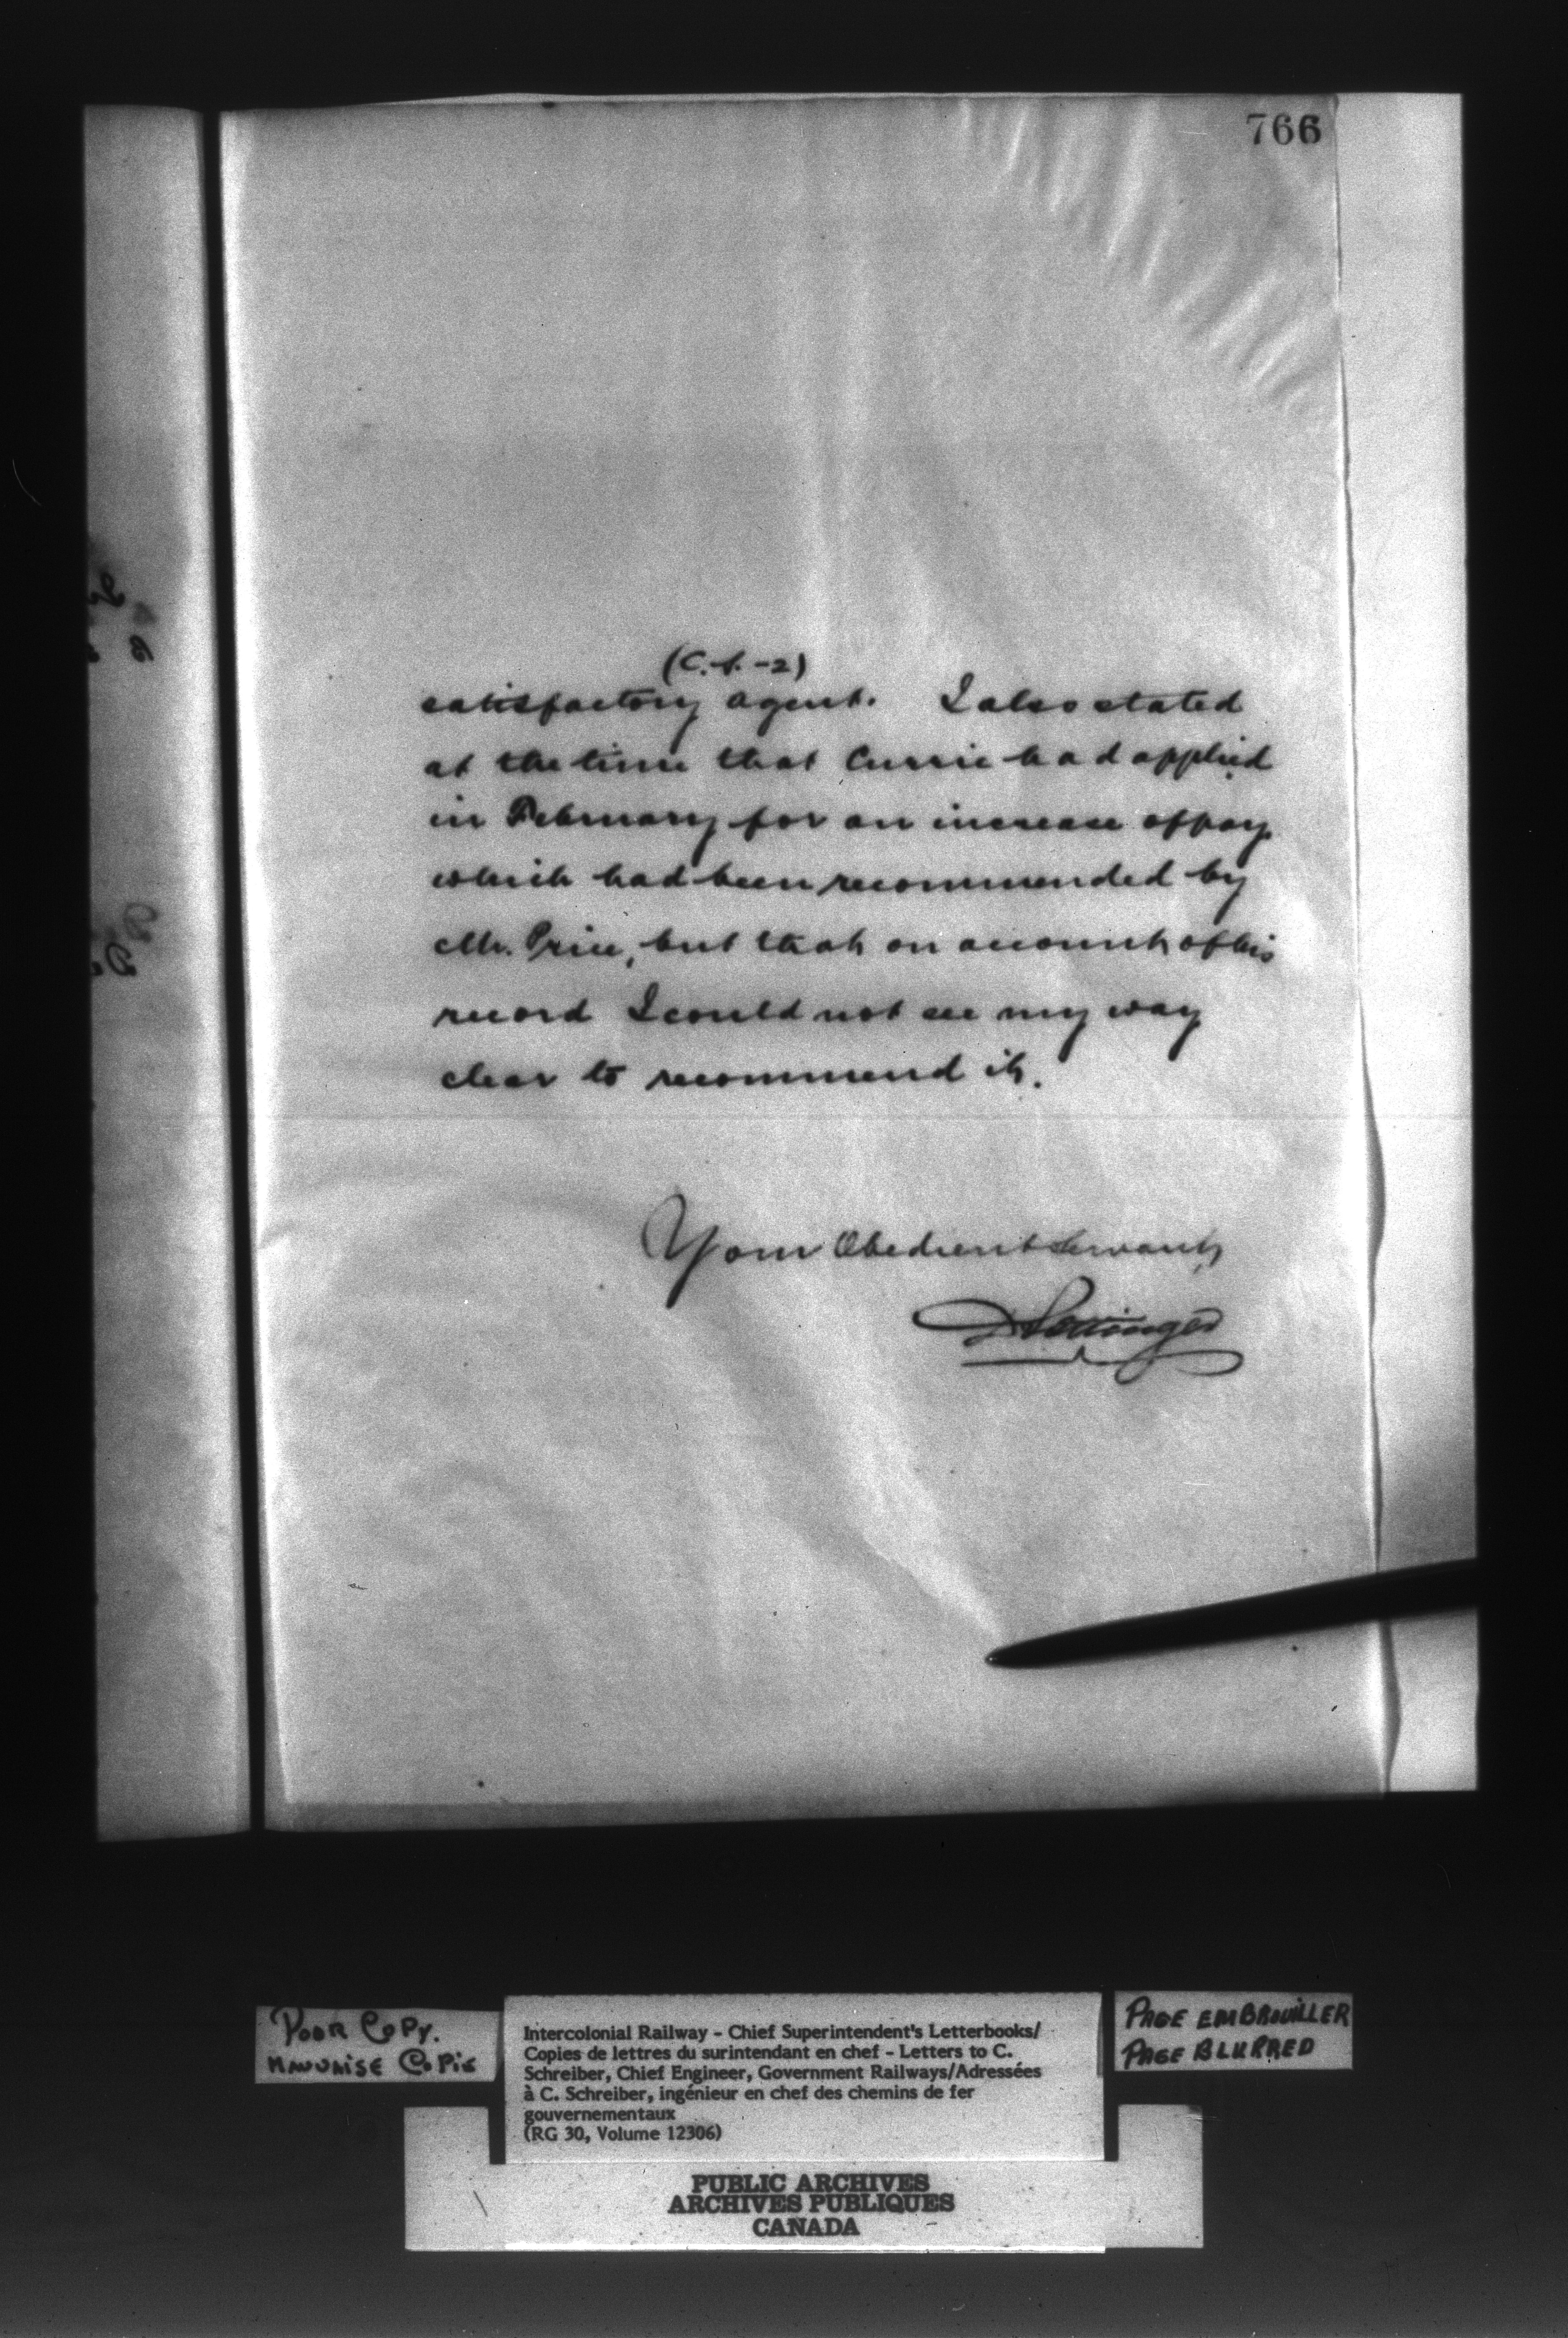 766
(C.S.-2)
satisfactory agent. I also stated
at the time that Currie had applied
in February for an increase of pay
which had been recommended by
Mr. Price, but that on account of his
record I could not see my way
clear to recommend it.
Your Obedient Servant,
D Pottinger
POOR COPY.
MAUVAISE COPIE
Intercolonial Railway - Chief Superintendent's Letterbooks/
Copies de lettres du surintendant en chef - Letters to C.
Schreiber, Chief Engineer, Government Railways/Adressées
à C. Schreiber, ingénieur en chef des chemins de fer
gouvernementaux
(RG 30, Volume 12306)
PAGE EMBROUILLER
PAGE BLURRED
PUBLIC ARCHIVES
ARCHIVES PUBLIQUES
CANADA